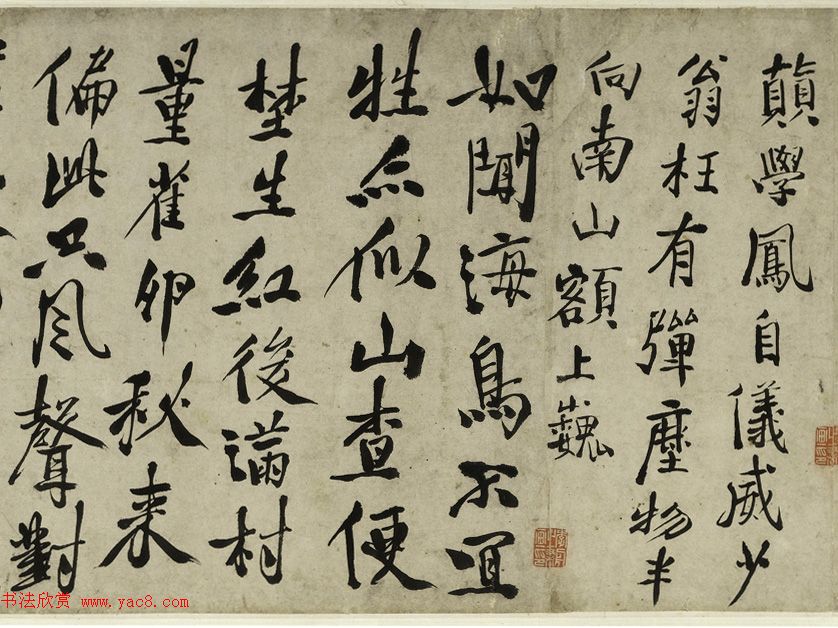 顛學鳳自儀威少
翁枉有彈塵物半
向南山額上巍
如聞海鳥不宜
牲亦似山查便
埜生紅後滿村
量雀卵秋来
偏此只风聲對
书法欣赏 www.yac8.com